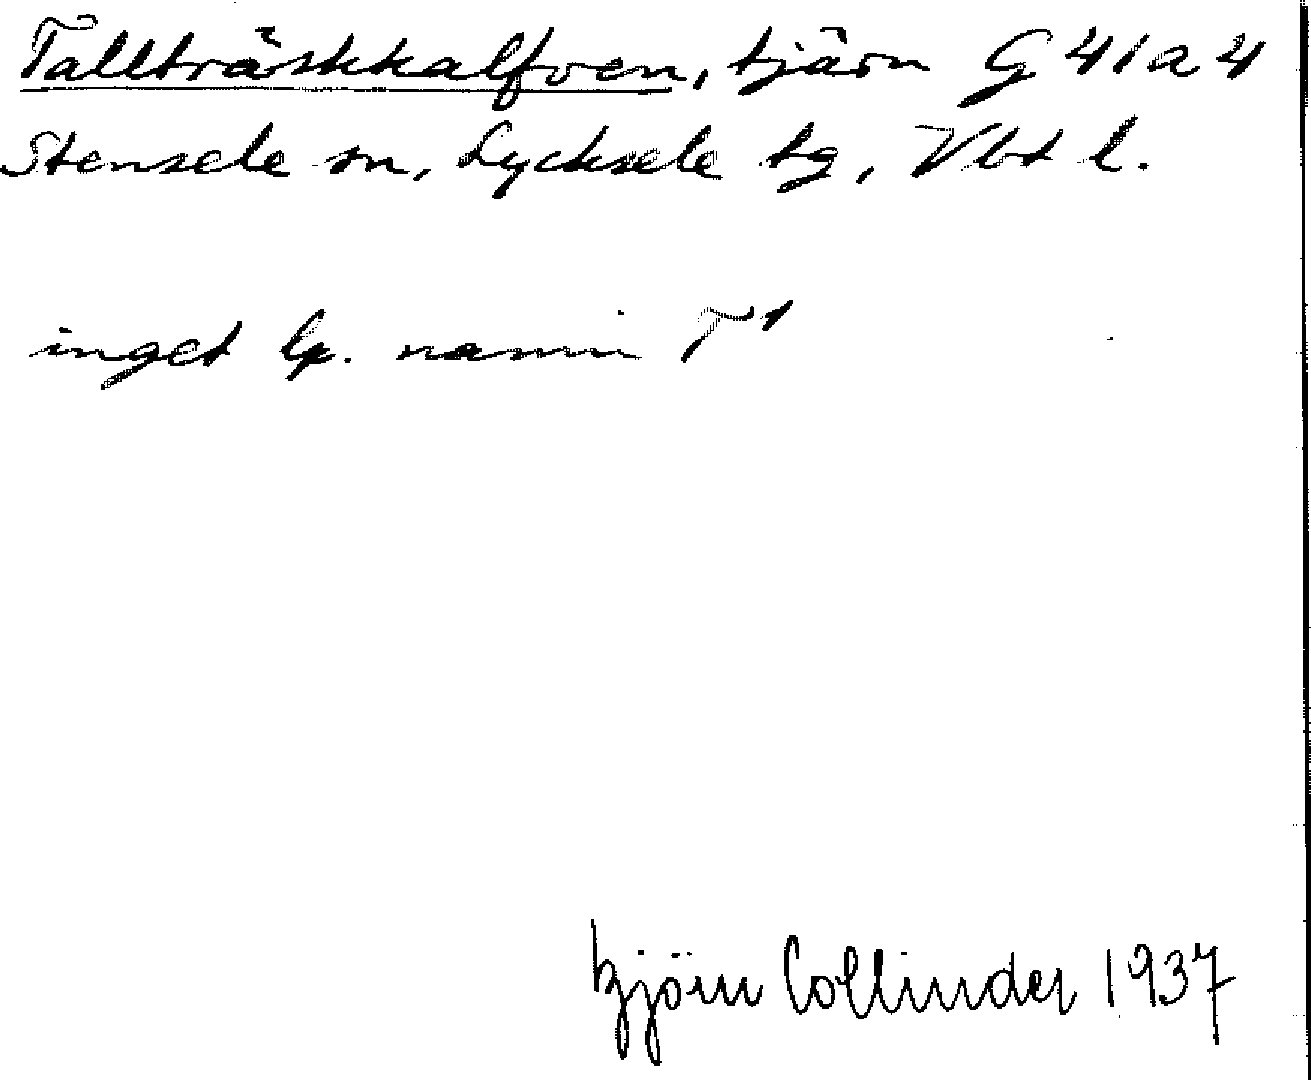 Tallträskkalfven, tjärn G 41 a 4
Stensele sn, Lycksele tg, Vbt l.
inget lp. namn T¹
Björn Collinder 1937